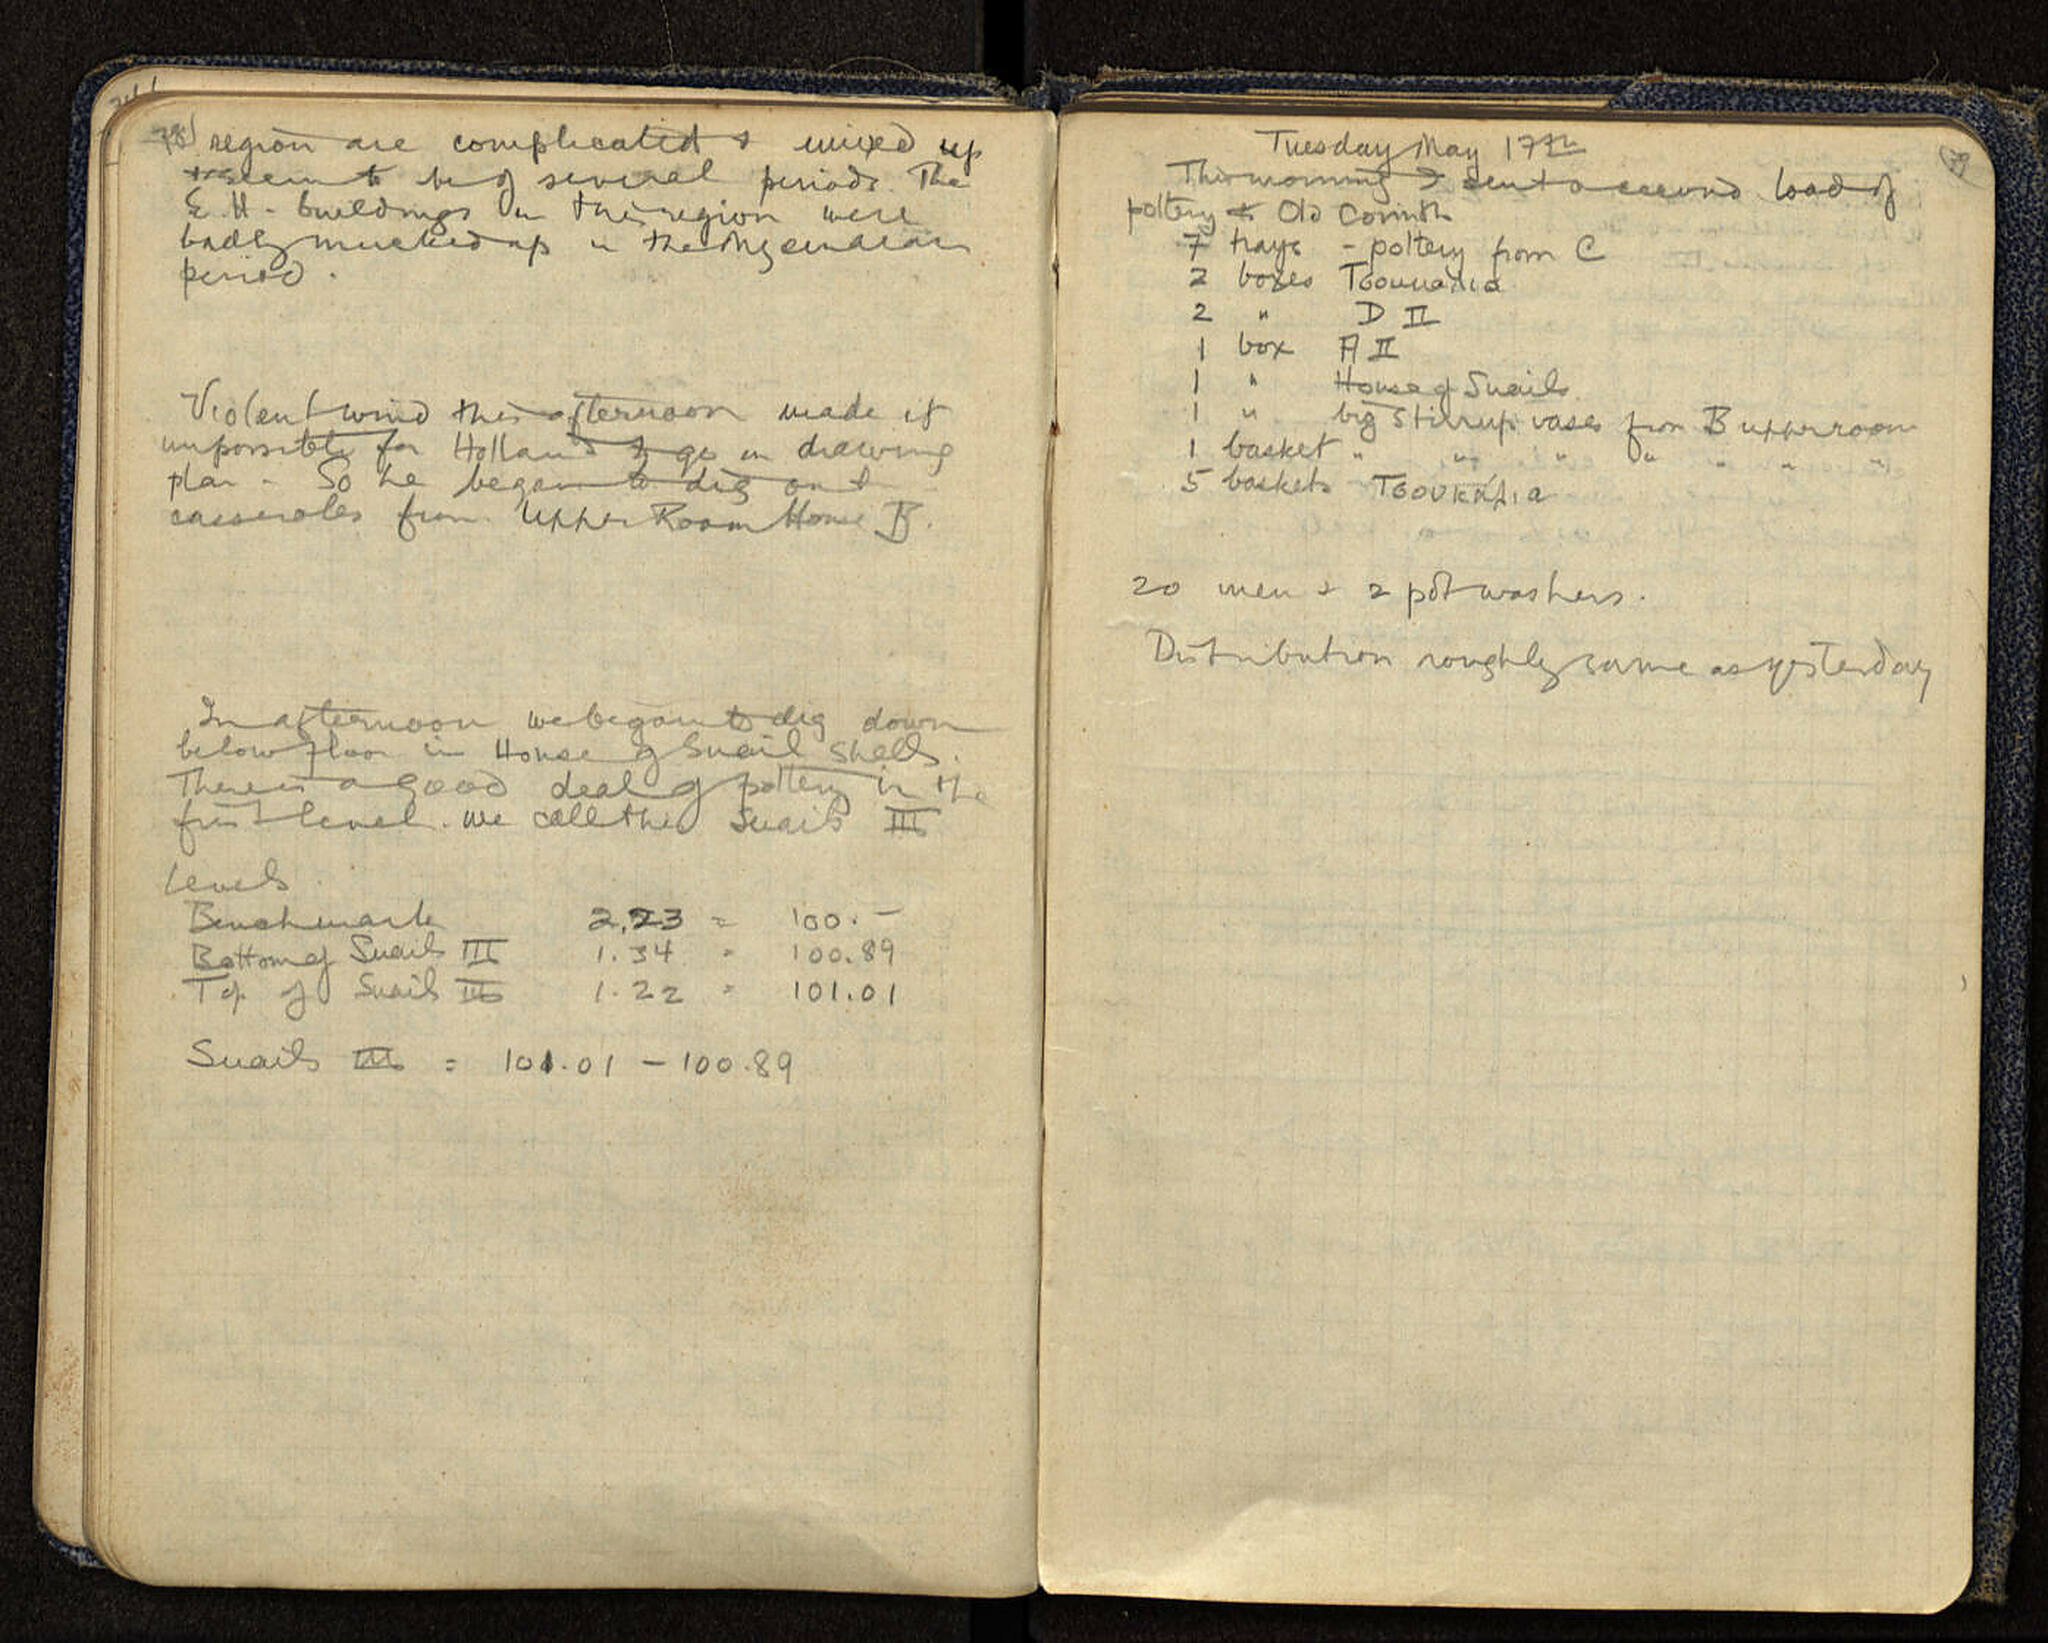 78
region are complicated & mixed up
& seem to be of several periods. The
E.H. buildings in this region were
badly mucked up in the Mycenaean
period.
Violent wind this afternoon made it
impossible for Holland to go on drawing
plan. So he began to dig out
casseroles from Upper Room House B.
In afternoon we began to dig down
below floor in House of Snail Shells.
There is a good deal of pottery in the
first level. We call this Snails III
Levels
Benchmark 2.23 = 100.—
Bottom of Snails III 1.34 = 100.89
Top of Snails III 1.22 = 101.01
Snails III = 101.01 – 100.89
79
Tuesday May 17th
This morning I sent a second load of
pottery to Old Corinth
7 trays – pottery from C
2 boxes Τσουκαλια
2 " D II
1 box A II
1 " House of Snails
1 " big stirrup vases from B upper room
1 basket " " " " " " "
5 baskets Τσουκάλια
20 men & 2 pot washers.
Distribution roughly same as yesterday